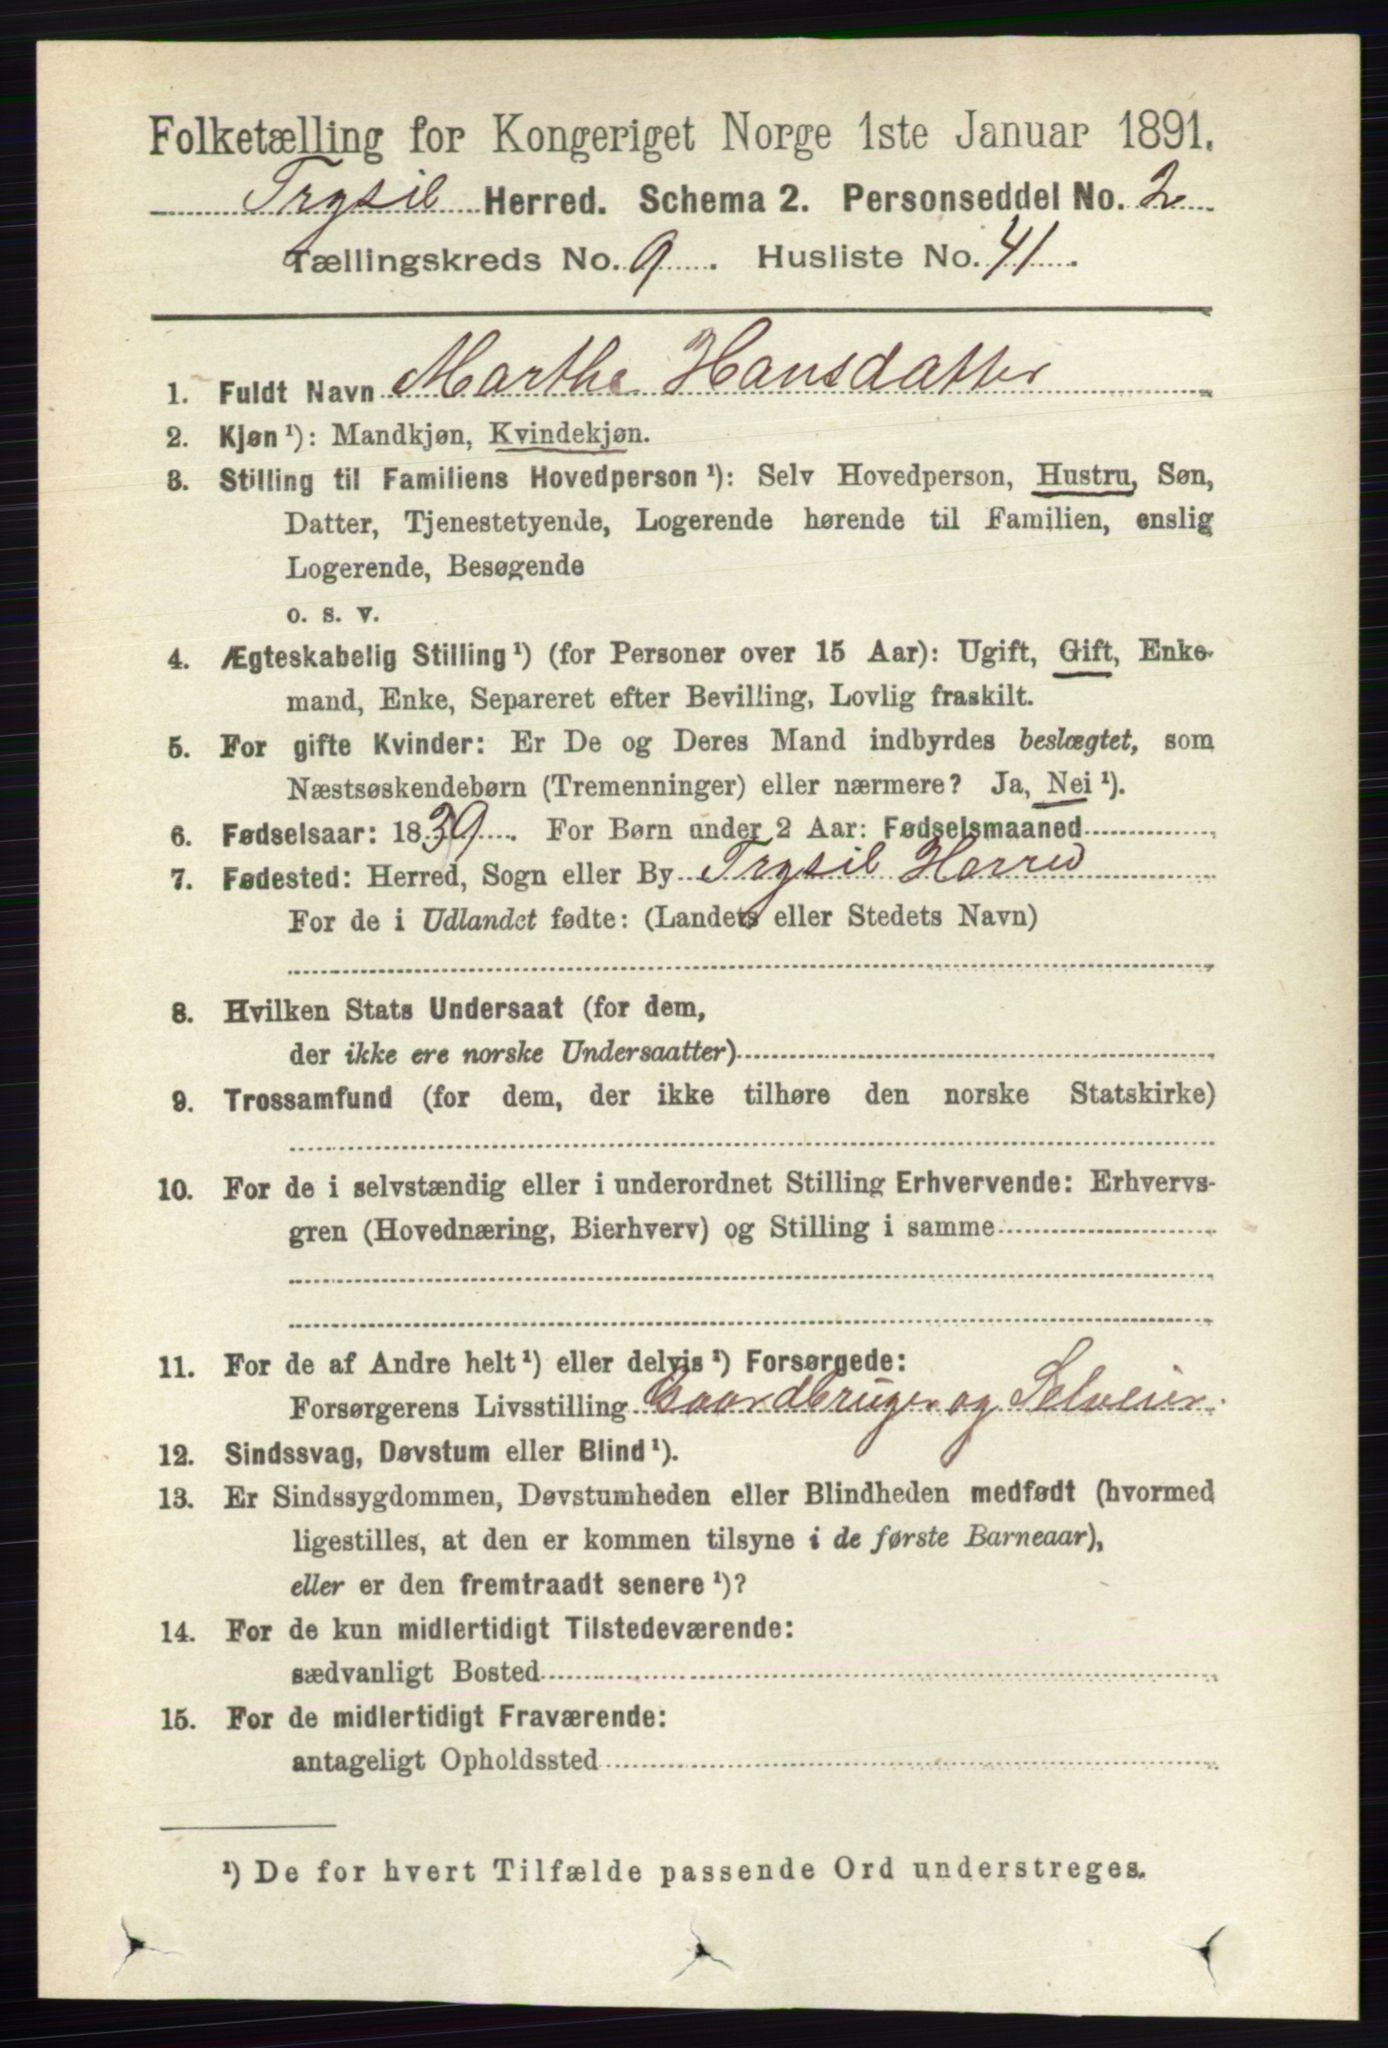 Folketælling for Kongeriget Norge 1ste Januar 1891.
Trysil Herred. Schema 2. Personseddel No. 2
Tællingskreds No. 9. Husliste No. 41.
1. Fuldt Navn Marthe Hansdatter
2. Kjøn¹): Mandkjøn, Kvindekjøn.
3. Stilling til Familiens Hovedperson¹): Selv Hovedperson, Hustru, Søn,
Datter, Tjenestetyende, Logerende hørende til Familien, enslig
Logerende, Besøgende
o. s. v.
4. Ægteskabelig Stilling¹) (for Personer over 15 Aar): Ugift, Gift, Enke-
mand, Enke, Separeret efter Bevilling, Lovlig fraskilt.
5. For gifte Kvinder: Er De og Deres Mand indbyrdes beslægtet, som
Næstsøskendebørn (Tremenninger) eller nærmere? Ja, Nei¹).
6. Fødselsaar: 1839. For Børn under 2 Aar: Fødselsmaaned
7. Fødested: Herred, Sogn eller By Trysil Herred
For de i Udlandet fødte: (Landets eller Stedets Navn)
8. Hvilken Stats Undersaat (for dem,
der ikke ere norske Undersaatter)
9. Trossamfund (for dem, der ikke tilhøre den norske Statskirke)
10. For de i selvstændig eller i underordnet Stilling Erhvervende: Erhvervs-
gren (Hovednæring, Bierhverv) og Stilling i samme
11. For de af Andre helt¹) eller delvis¹) Forsørgede:
Forsørgerens Livsstilling Gaardbruger og Selveier.
12. Sindssvag, Døvstum eller Blind¹).
13. Er Sindssygdommen, Døvstumheden eller Blindheden medfødt (hvormed
ligestilles, at den er kommen tilsyne i de første Barneaar),
eller er den fremtraadt senere¹)?
14. For de kun midlertidigt Tilstedeværende:
sædvanligt Bosted
15. For de midlertidigt Fraværende:
antageligt Opholdssted
¹) De for hvert Tilfælde passende Ord understreges.